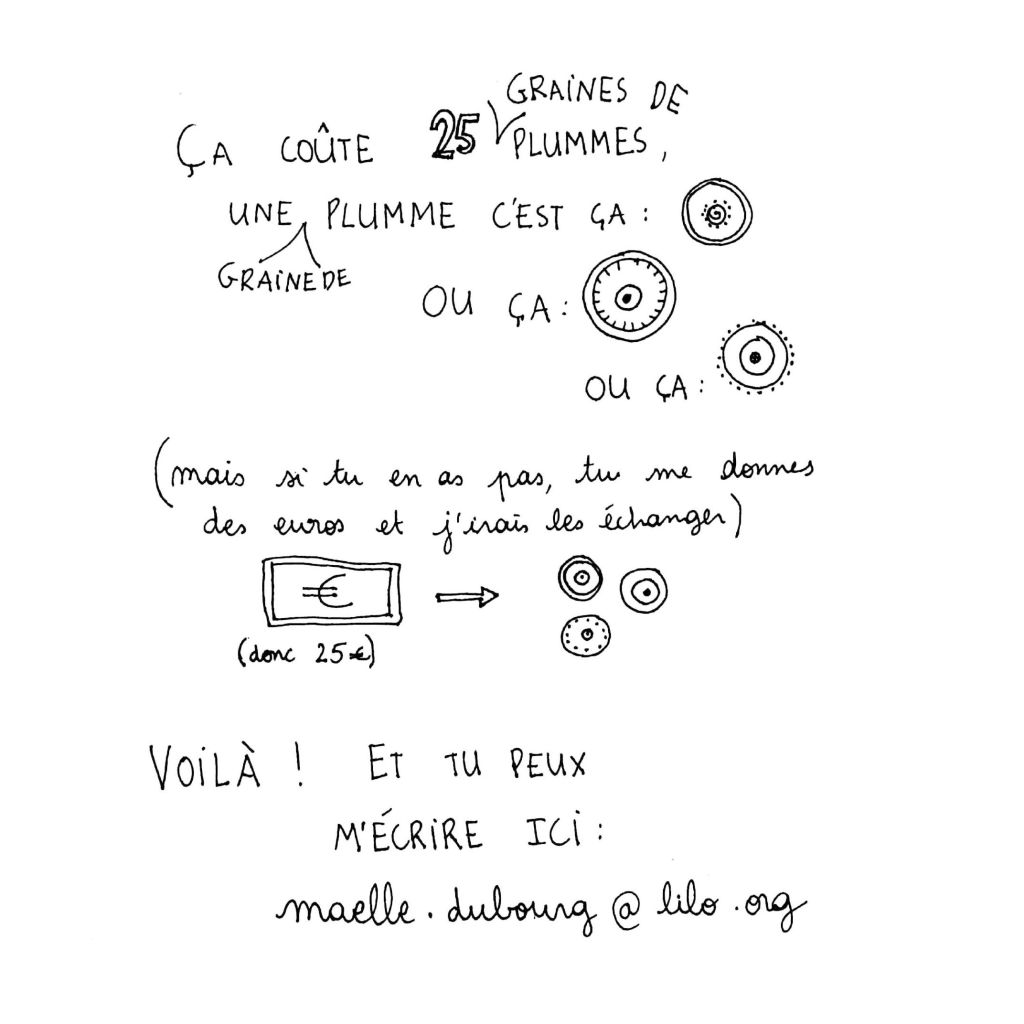 GRAINES DE
ÇA COÛTE 25 PLUMMES,
UNE PLUMME C'EST ÇA :
GRAINE DE
OU ÇA :
OU ÇA :
(mais si tu en as pas, tu me donnes
des euros et j'irais les échanger)
€
(donc 25€)
VOILÀ ! ET TU PEUX
M'ÉCRIRE ICI :
maelle.dubourg@lilo.org